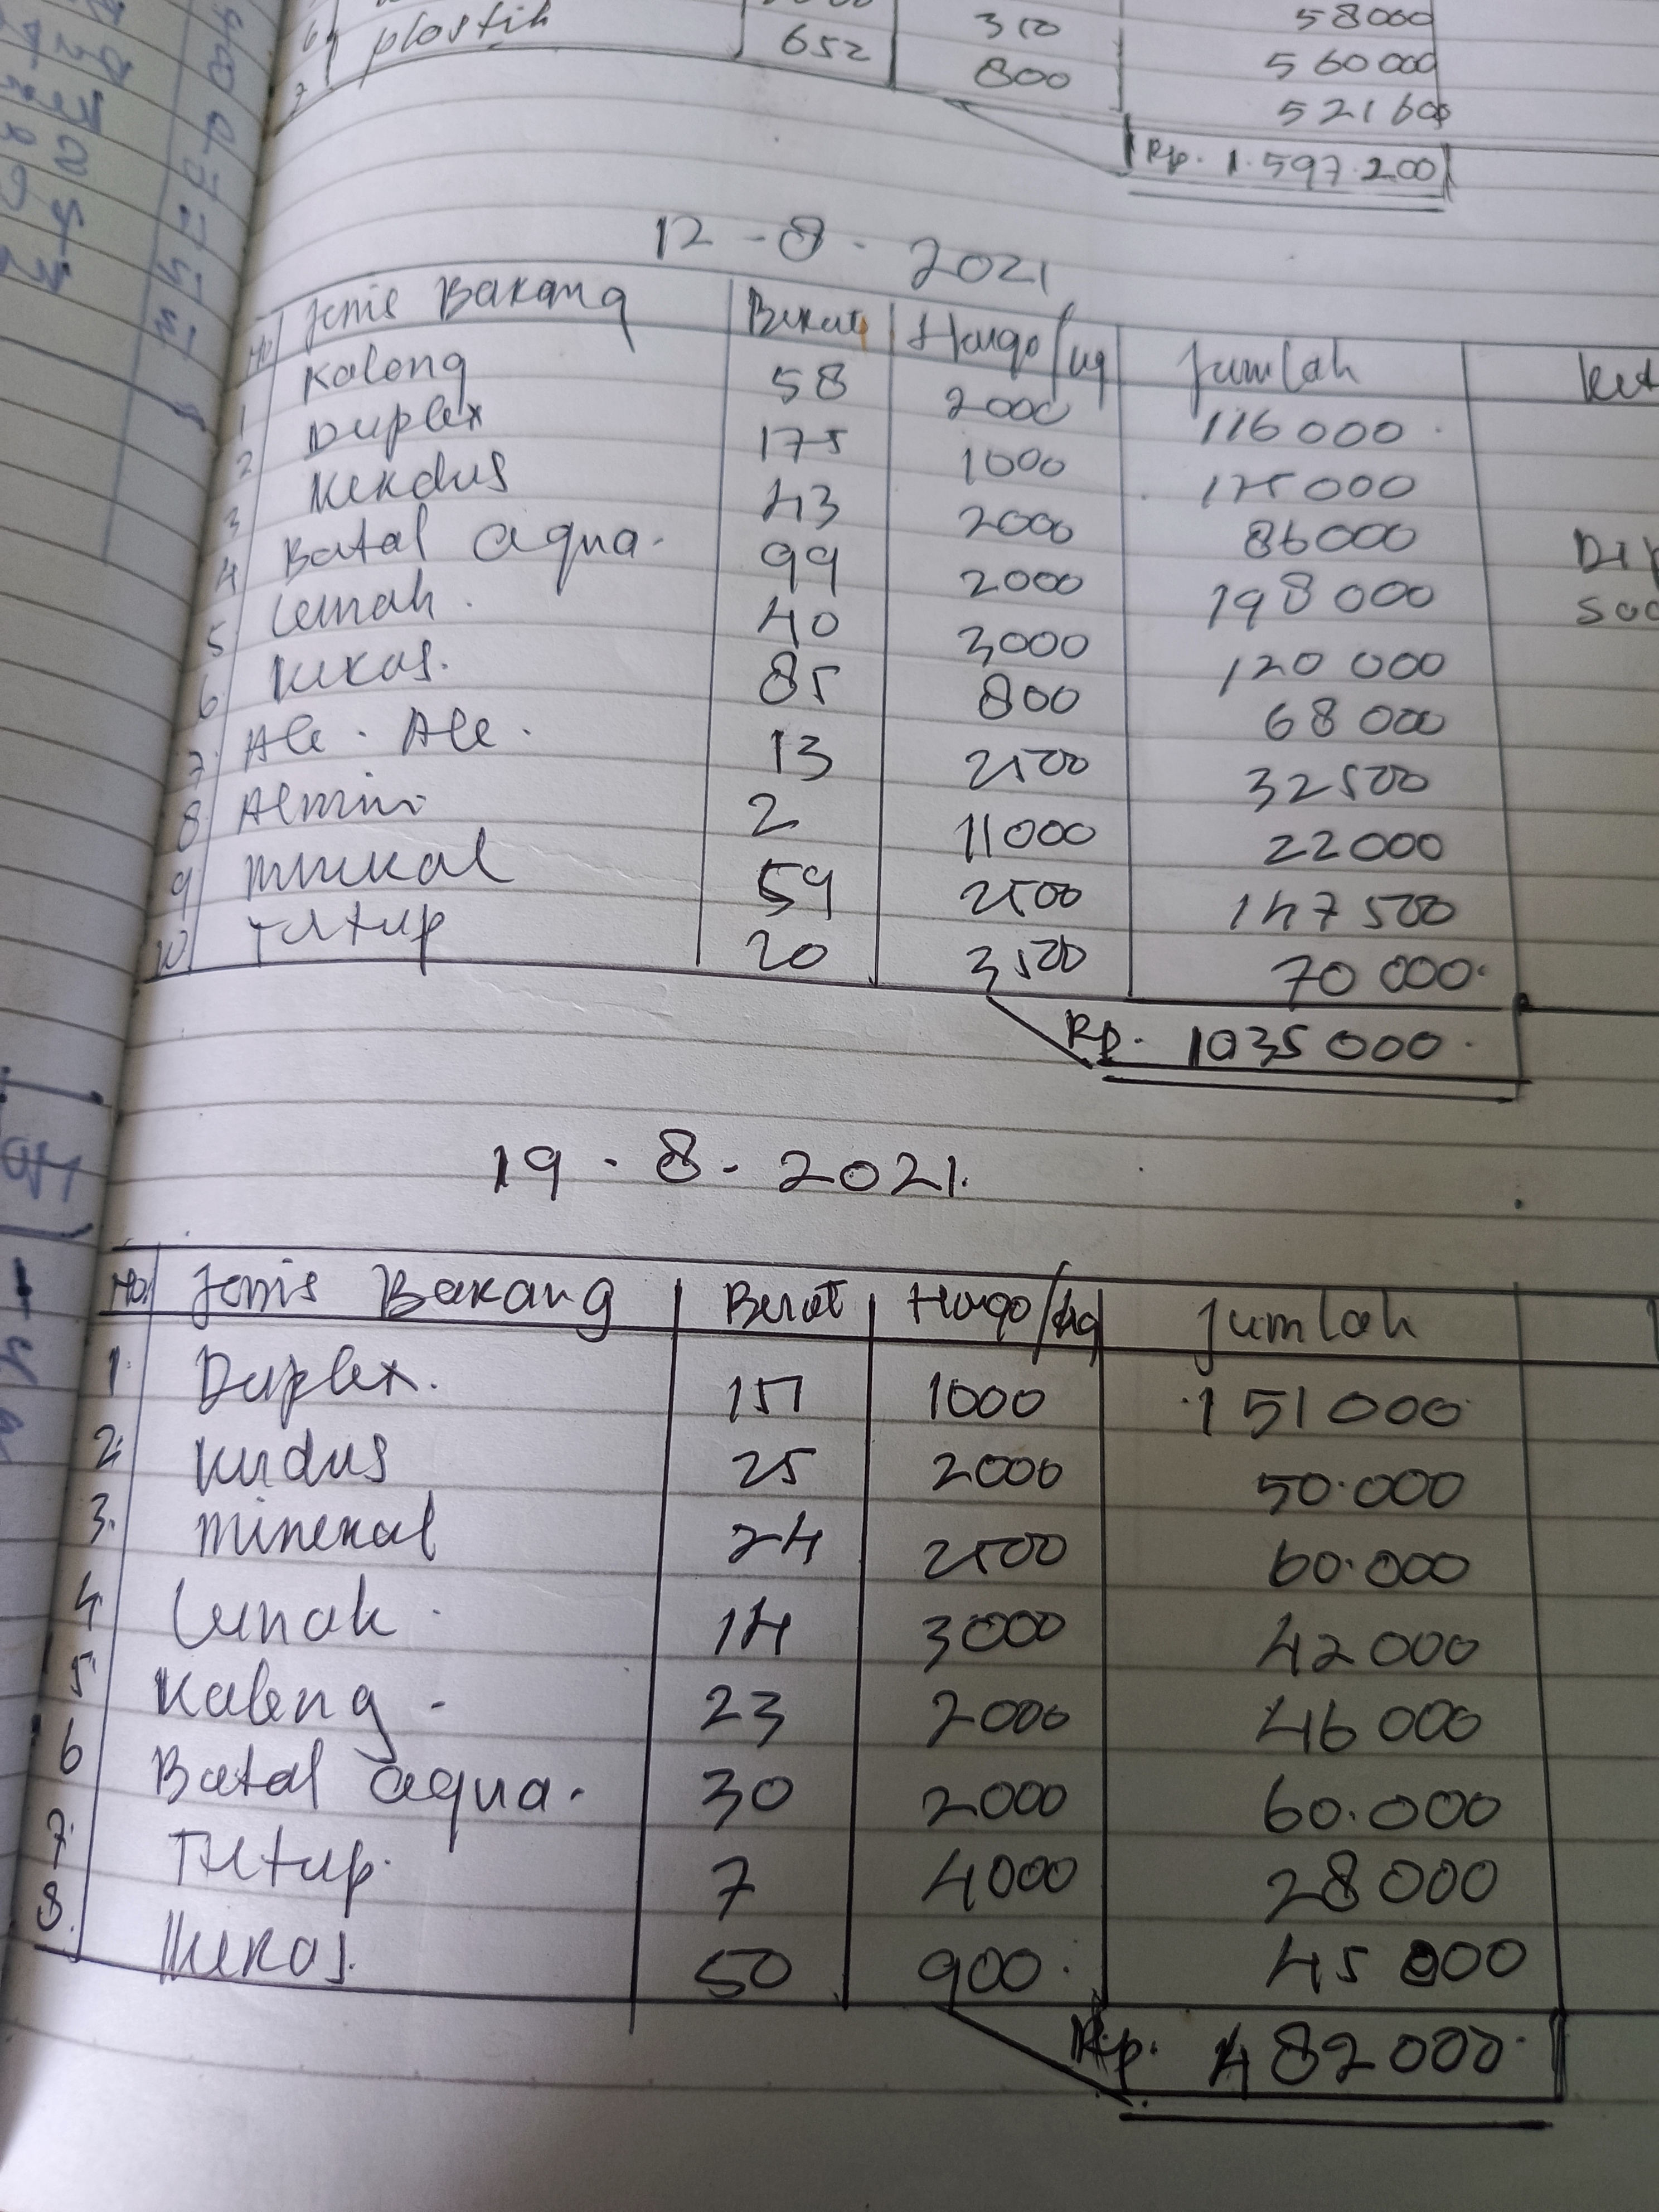 6 310 58000
7 plastik 652 800 560000
521600
Rp. 1.597.200
12 - 8 - 2021
No Jenis Barang Berat Harga/kg Jumlah Ket
1 Kaleng 58 2000 116000
2 Duplex 175 1000 175000
3 Kerdus 43 2000 86000
4 Botol aqua. 99 2000 198000
5 Lemak. 40 3000 120 000
6 Keras. 85 800 68000
7 Ale. Ale. 13 2500 32500
8 Almini 2 11000 22000
9 Mineral 59 2500 147500
10 Tutup 20 3500 70 000.
Rp. 1035000.
19 . 8 . 2021.
No. Jenis Barang Berat Harga/kg Jumlah
1. Duplex. 151 1000 151000
2. Kerdus 25 2000 50.000
3. Mineral 24 2500 60.000
4. Lemak. 14 3000 42000
5. Kaleng - 23 2000 46000
6 Botol aqua. 30 2000 60.000
7. Tutup. 7 4000 28000
8. Keras. 50 900. 45000
Rp. 482000.